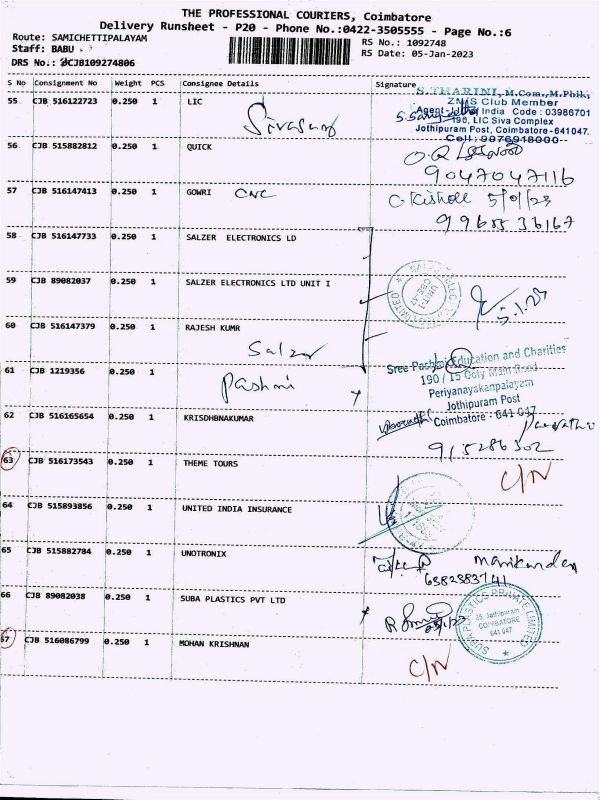 THE PROFESSIONAL COURIERS, Coimbatore
Delivery Runsheet - P20 - Phone No.:0422-3505555 - Page No.:6
Route: SAMICHETTIPALAYAM
RS No.: 1092748
Staff: BABU
RS Date: 05-Jan-2023
DRS No.: CJB109274806
S No Consignment No Weight PCS Consignee Details Signature
S.THARINI, M.Com., M.Phil.,
ZM'S Club Member
55 CJB 516122723 0.250 1 LIC
Agent India Code : 03986701
196, LIC Siva Complex
Jothipuram Post, Coimbatore-641047.
Cell: 9876918000
56 CJB 515882812 0.250 1 QUICK
9047047116
57 CJB 516147413 0.250 1 GOWRI CNC
C Kishore 5/01/23
9965536167
58 CJB 516147733 0.250 1 SALZER ELECTRONICS LD
59 CJB 89082037 0.250 1 SALZER ELECTRONICS LTD UNIT I
5.1.23
60 CJB 516147379 0.250 1 RAJESH KUMR
Salzer
61 CJB 1219356 0.250 1 Pashmi
Sree Pashmi Education and Charities
190 / 15 Ooty Main Road
Periyanayakanpalayam
Jothipuram Post
Coimbatore - 641 047
62 CJB 516165654 0.250 1 KRISDHBNAKUMAR
915286302
63 CJB 516173543 0.250 1 THEME TOURS
C/N
64 CJB 515893856 0.250 1 UNITED INDIA INSURANCE
65 CJB 515882784 0.250 1 UNOTRONIX
Manikandan
6382383741
66 CJB 89082038 0.250 1 SUBA PLASTICS PVT LTD
SUBA PLASTICS PRIVATE LIMITED
35, Jothipuram
COIMBATORE
641 047
67 CJB 516086799 0.250 1 MOHAN KRISHNAN
C/N